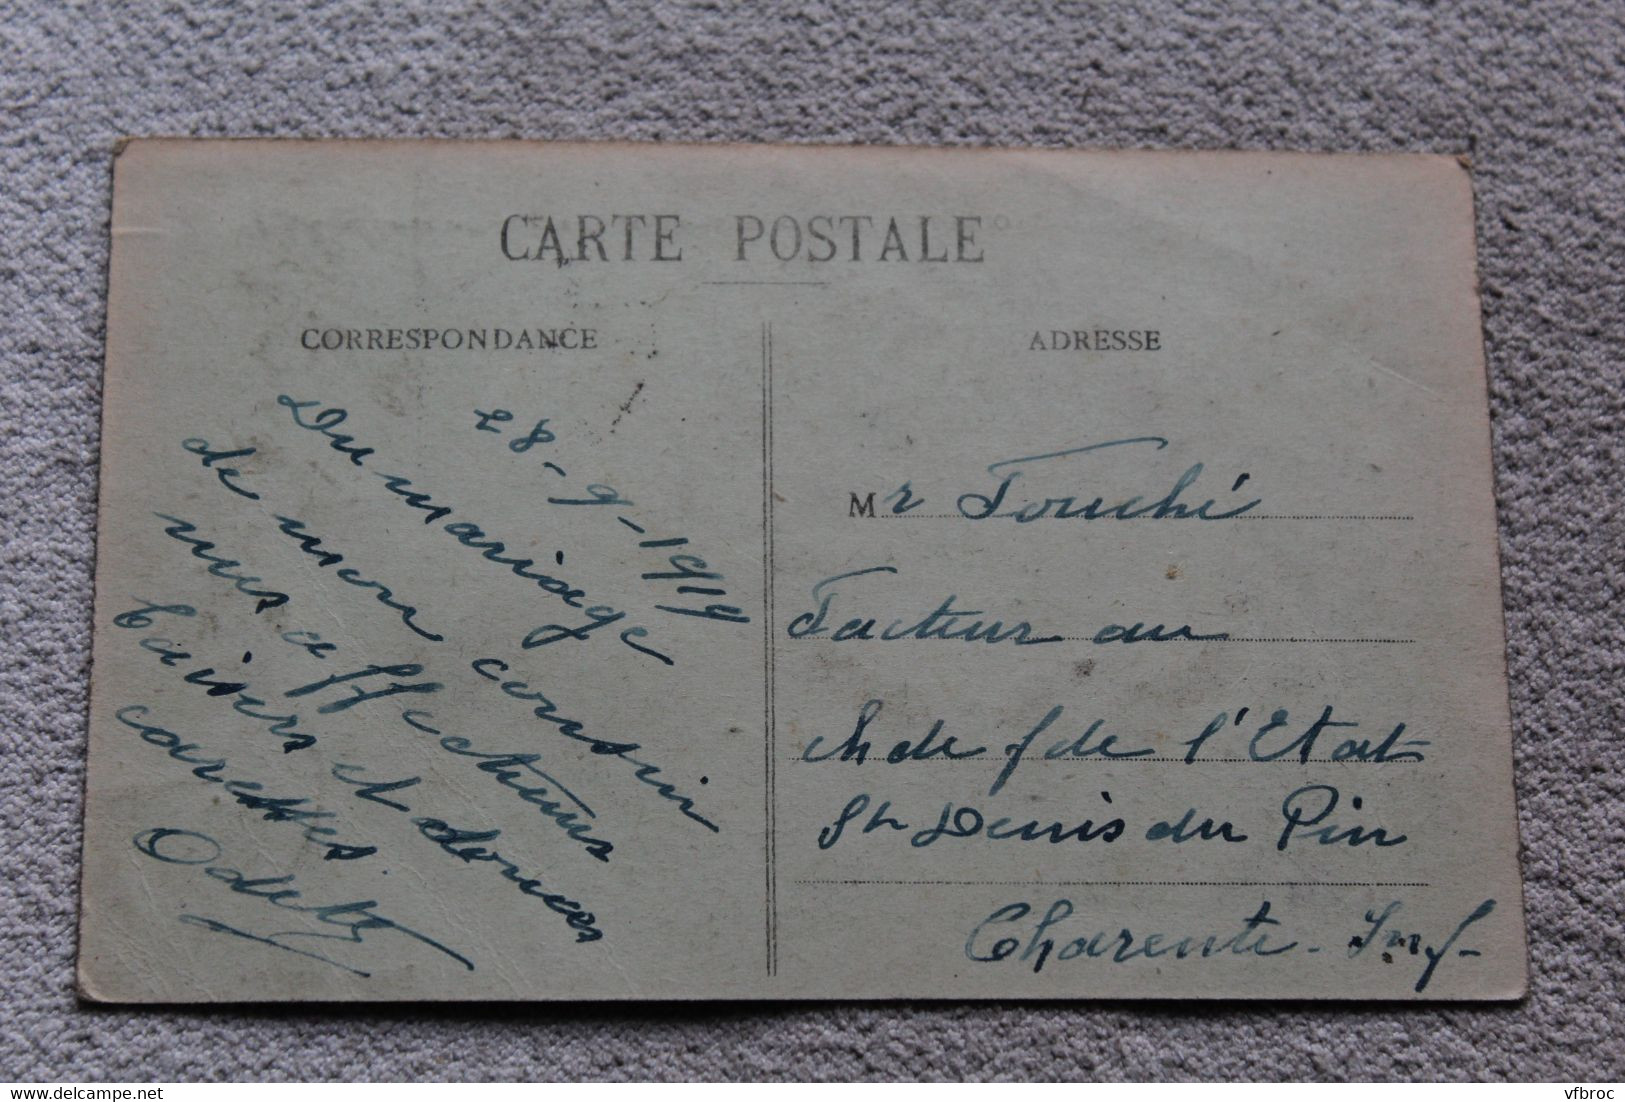 CARTE POSTALE
CORRESPONDANCE
28-9-1919
Du mariage
de mon cousin
mes affectueux
baisers et douces
caresses
Odette
ADRESSE
Mr Fouché
Facteur au
ch de f de l'Etat
St Denis du Pin
Charente-Inf-
vfbroc